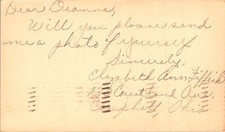 Dear Deanna,
Will you please send
me a photo of yourself
Sincerely,
Elizabeth Ann
Ohio